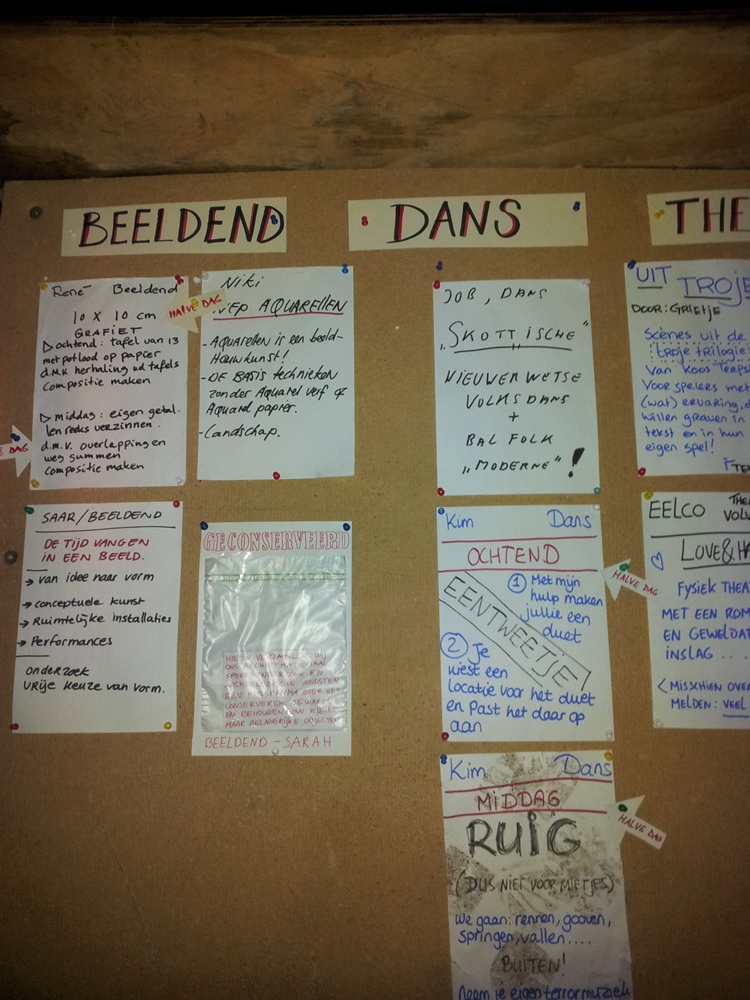 BEELDEND
DANS
THE
René Beeldend
10 x 10 cm
GRAFIET
▷ ochtend: tafel van 13
met potlood op papier
d.m.v. herhaling vd tafels
compositie maken
▷ middag: eigen getal-
len reeks verzinnen.
d.m.v. overlappingen
weg gummen
compositie maken
HALVE DAG
E DAG
Niki
AQUARELLEN
- Aquarellen is een beeld-
houwkunst!
- DE BASIS technieken
zonder Aquarel verf of
Aquarel papier.
- Landschap.
SAAR/BEELDEND
DE TIJD VANGEN
IN EEN BEELD.
→ van idee naar vorm
→ conceptuele kunst
→ Ruimtelijke installaties
→ Performances
onderzoek
vrije keuze van vorm.
GECONSERVEERD
CONSERVEREN, BEWAREN
EN BEHOUDEN VAN KLEINE
MAAR BELANGRIJKE OBJECTEN
BEELDEND - SARAH
JOB, DANS
„SKOTTISCHE"
NIEUWERWETSE
VOLKSDANS
+
BAL FOLK
„MODERNE" !
Kim Dans
OCHTEND
① Met mijn
hulp maken
jullie een
duet
EENTWEETJE!
② Je
kiest een
locatie voor het duet
en past het daar op
aan
HALVE DAG
Kim Dans
MIDDAG
RUIG
(DUS NIET VOOR MIETJES)
We gaan: rennen, gooien,
springen, vallen....
BUITEN!
Neem je eigen terrormuziek
HALVE DAG
UIT TROJE
DOOR: GRIETJE
Scènes uit de
troje trilogie
van Koos Terpst
Voor spelers met
(wat) ervaring, d
willen graven in
tekst en in hun
eigen spel!
EELCO THE
LOVE & HA
FYSIEK THEA
MET EEN ROM
EN GEWELDAD
INSLAG ...
(MISSCHIEN OVER
MELDEN: VEEL